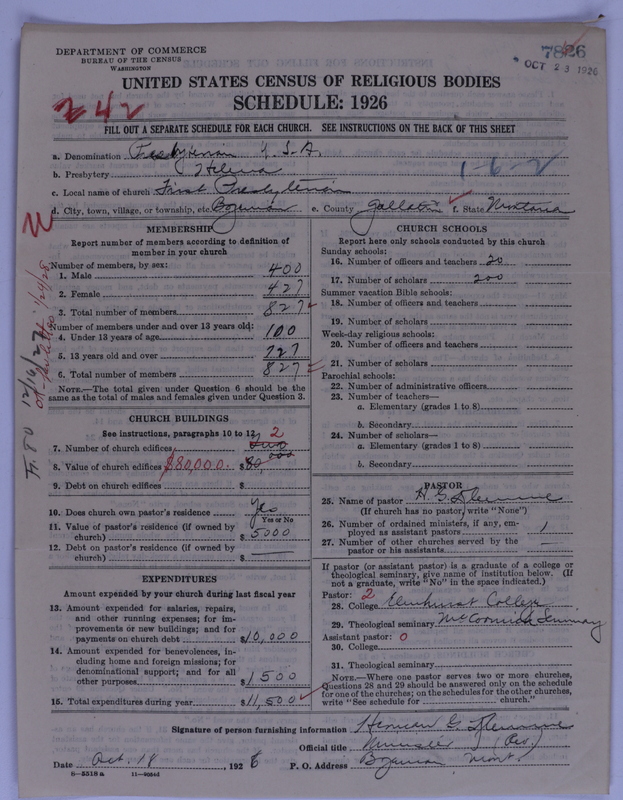 DEPARTMENT OF COMMERCE
BUREAU OF THE CENSUS
WASHINGTON
7826
OCT 23 1926
UNITED STATES CENSUS OF RELIGIOUS BODIES
SCHEDULE: 1926
242
FILL OUT A SEPARATE SCHEDULE FOR EACH CHURCH. SEE INSTRUCTIONS ON THE BACK OF THIS SHEET
a. Denomination Presbyterian U.S.A.
b. Presbytery Helena
1-6-2
c. Local name of church First Presbyterian
d. City, town, village, or township, etc. Bozeman e. County Gallatin f. State Montana
MEMBERSHIP
Report number of members according to definition of member in your church
Number of members, by sex:
1. Male 400
2. Female 427
3. Total number of members 827
Number of members under and over 13 years old:
4. Under 13 years of age 100
5. 13 years old and over 727
6. Total number of members 827
NOTE.—The total given under Question 6 should be the
same as the total of males and females given under Question 3.
CHURCH BUILDINGS
See instructions, paragraphs 10 to 12
7. Number of church edifices two 2
8. Value of church edifices $80,000. $80,000
9. Debt on church edifices $
10. Does church own pastor's residence Yes
Yes or No
11. Value of pastor's residence (if owned by
church) $5000
12. Debt on pastor's residence (if owned by
church) $
EXPENDITURES
Amount expended by your church during last fiscal year
13. Amount expended for salaries, repairs,
and other running expenses; for im-
provements or new buildings; and for
payments on church debt $10,000
14. Amount expended for benevolences, in-
cluding home and foreign missions; for
denominational support; and for all
other purposes $1500
15. Total expenditures during year $11,500
CHURCH SCHOOLS
Report here only schools conducted by this church
Sunday schools:
16. Number of officers and teachers 20
17. Number of scholars 200
Summer vacation Bible schools:
18. Number of officers and teachers
19. Number of scholars
Week-day religious schools:
20. Number of officers and teachers
21. Number of scholars
Parochial schools:
22. Number of administrative officers
23. Number of teachers—
a. Elementary (grades 1 to 8)
b. Secondary
24. Number of scholars—
a. Elementary (grades 1 to 8)
b. Secondary
PASTOR
25. Name of pastor H. G.
(If church has no pastor, write "None")
26. Number of ordained ministers, if any, em-
ployed as assistant pastors 1
27. Number of other churches served by the
pastor or his assistants
If pastor (or assistant pastor) is a graduate of a college or
theological seminary, give name of institution below. (If
not a graduate, write "No" in the space indicated.)
Pastor: 2
28. College Elmhurst College
29. Theological seminary McCormick Seminary
Assistant pastor: 0
30. College
31. Theological seminary
NOTE.—Where one pastor serves two or more churches,
Questions 28 and 29 should be answered only on the schedule
for one of the churches; on the schedules for the other churches,
write "See schedule for church."
Signature of person furnishing information Herman G.
Official title Minister (Rev)
Date Oct. 18, 1926 P. O. Address Bozeman Mont
8—5518a 11—9034d